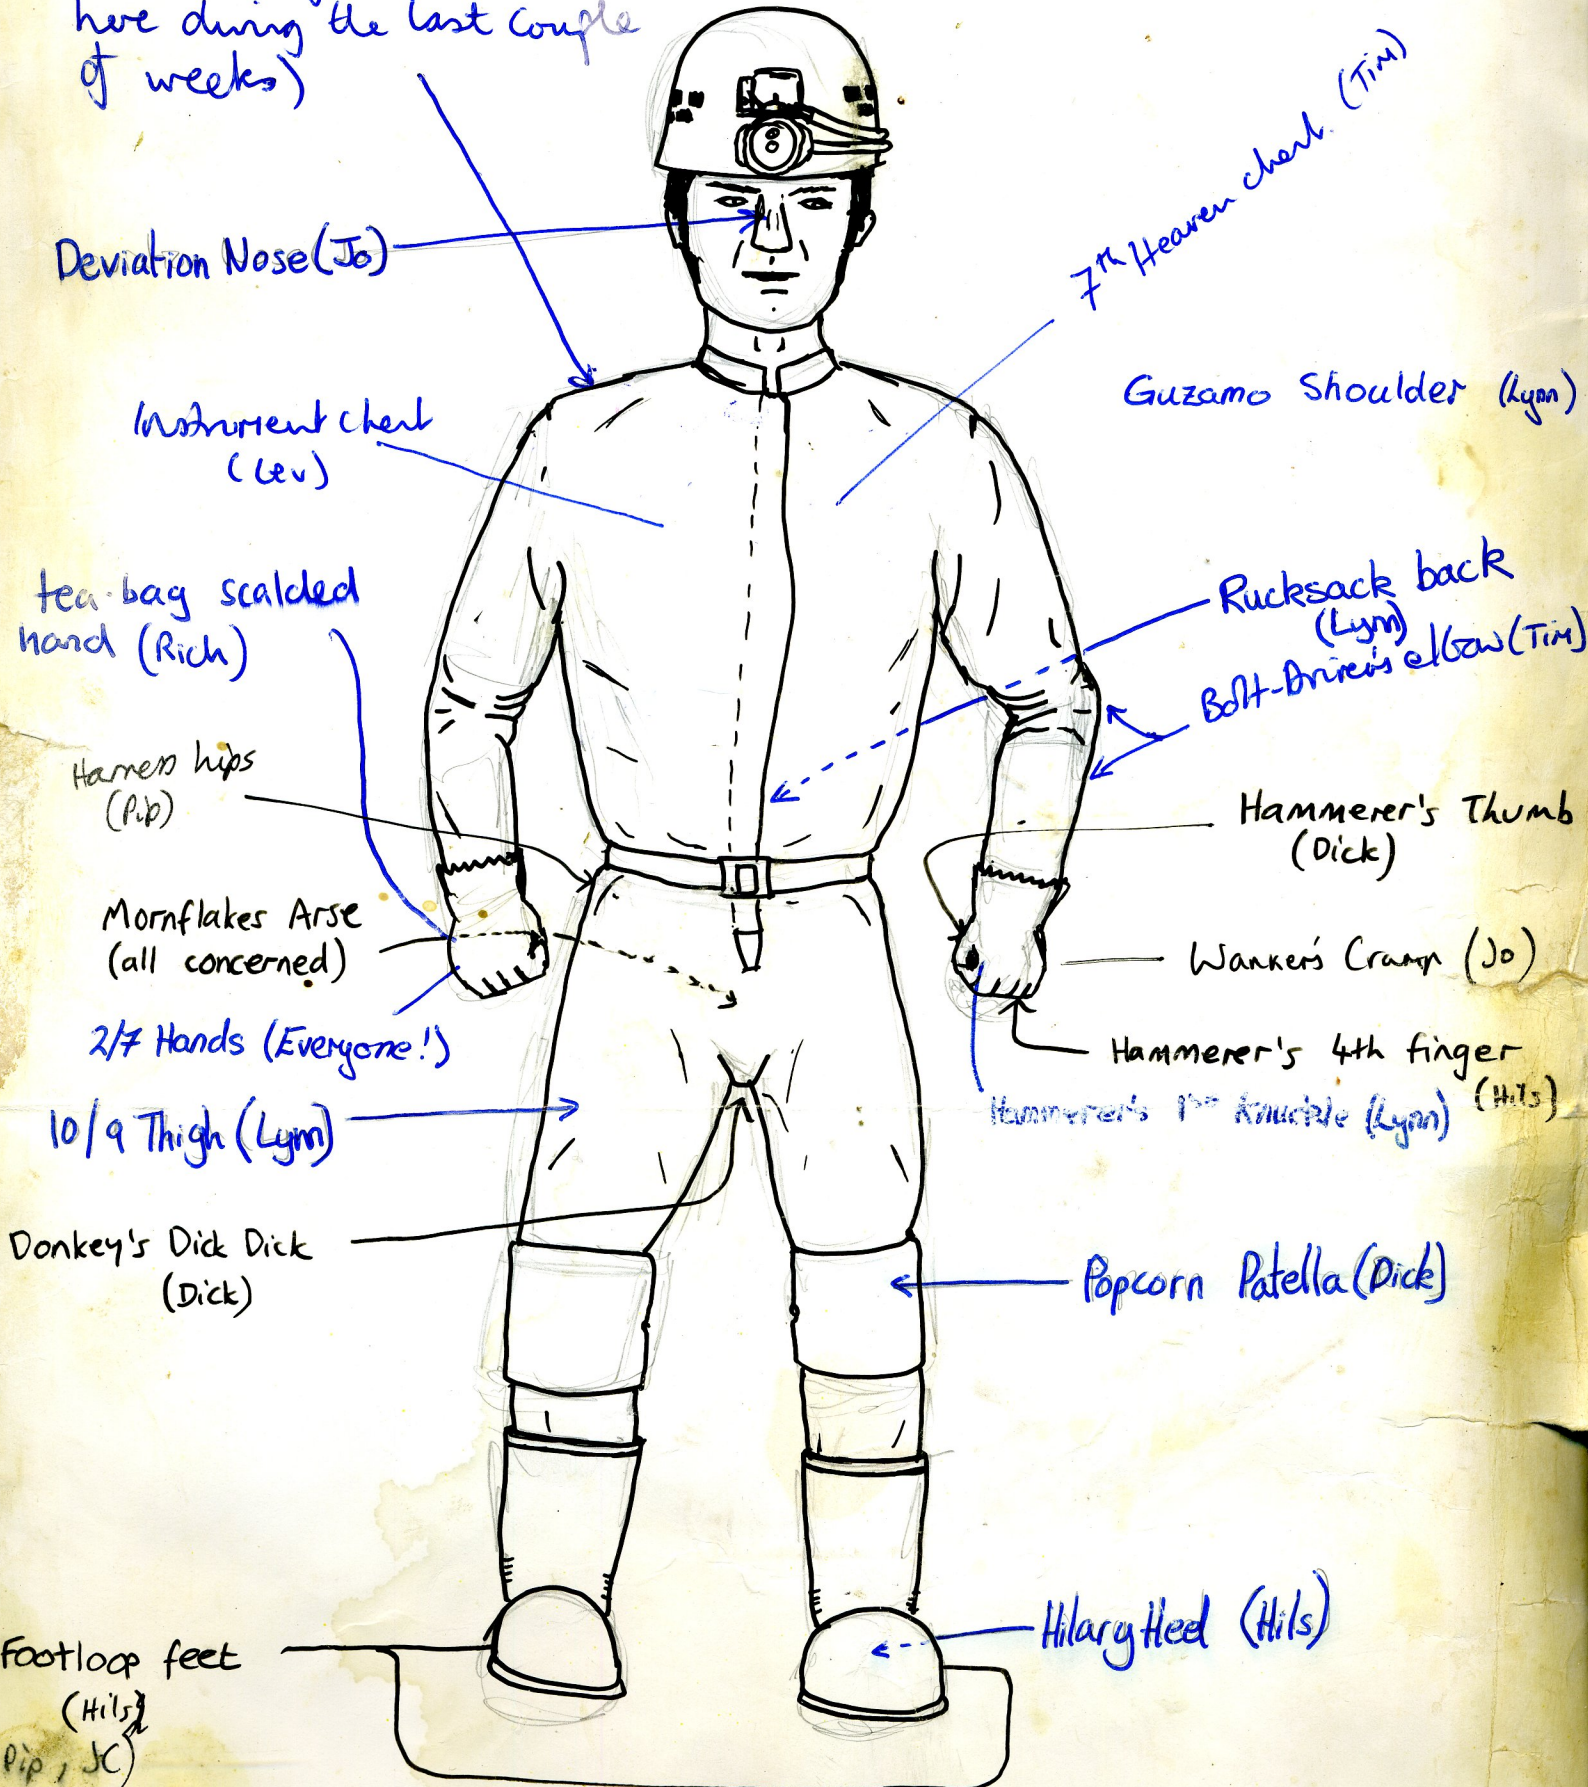 here during the last couple
of weeks)
7th Heaven chest (Tim)
Deviation Nose (Jo)
Guzamo Shoulder (Lynn)
Instrument chest
(Lev)
tea-bag scalded
hand (Rich)
Rucksack back
(Lynn)
Bolt-Driver's elbow (Tim)
Harness hips
(Pip)
Hammerer's Thumb
(Dick)
Mornflakes Arse
(all concerned)
Wanker's Cramp (Jo)
2/7 Hands (Everyone!)
Hammerer's 4th finger
(Hils)
Hammerer's 1st Knuckle (Lynn)
10/9 Thigh (Lynn)
Donkey's Dick Dick
(Dick)
Popcorn Patella (Dick)
Hilary Heel (Hils)
Footloop feet
(Hils)
Pip, JC)